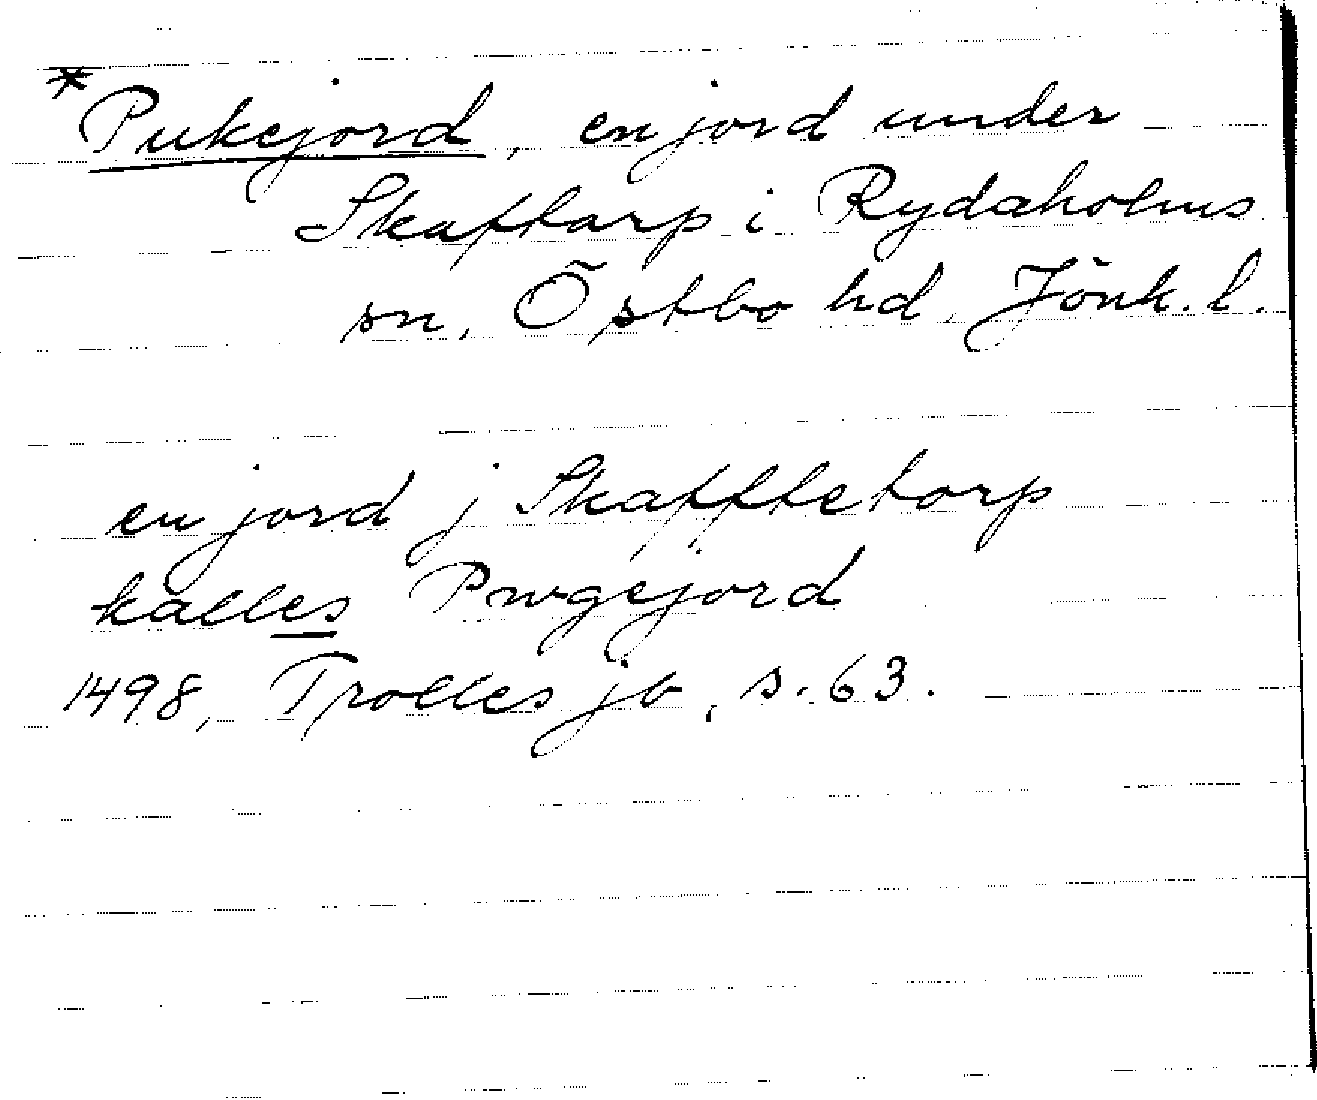 *Pukejord, en jord under
Skaftarp i Rydaholms
sn, Östbo hd, Jönk. l.
en jord j Skafftetorp
kalles Pwgejord
1498, Trolles jb, s. 63.